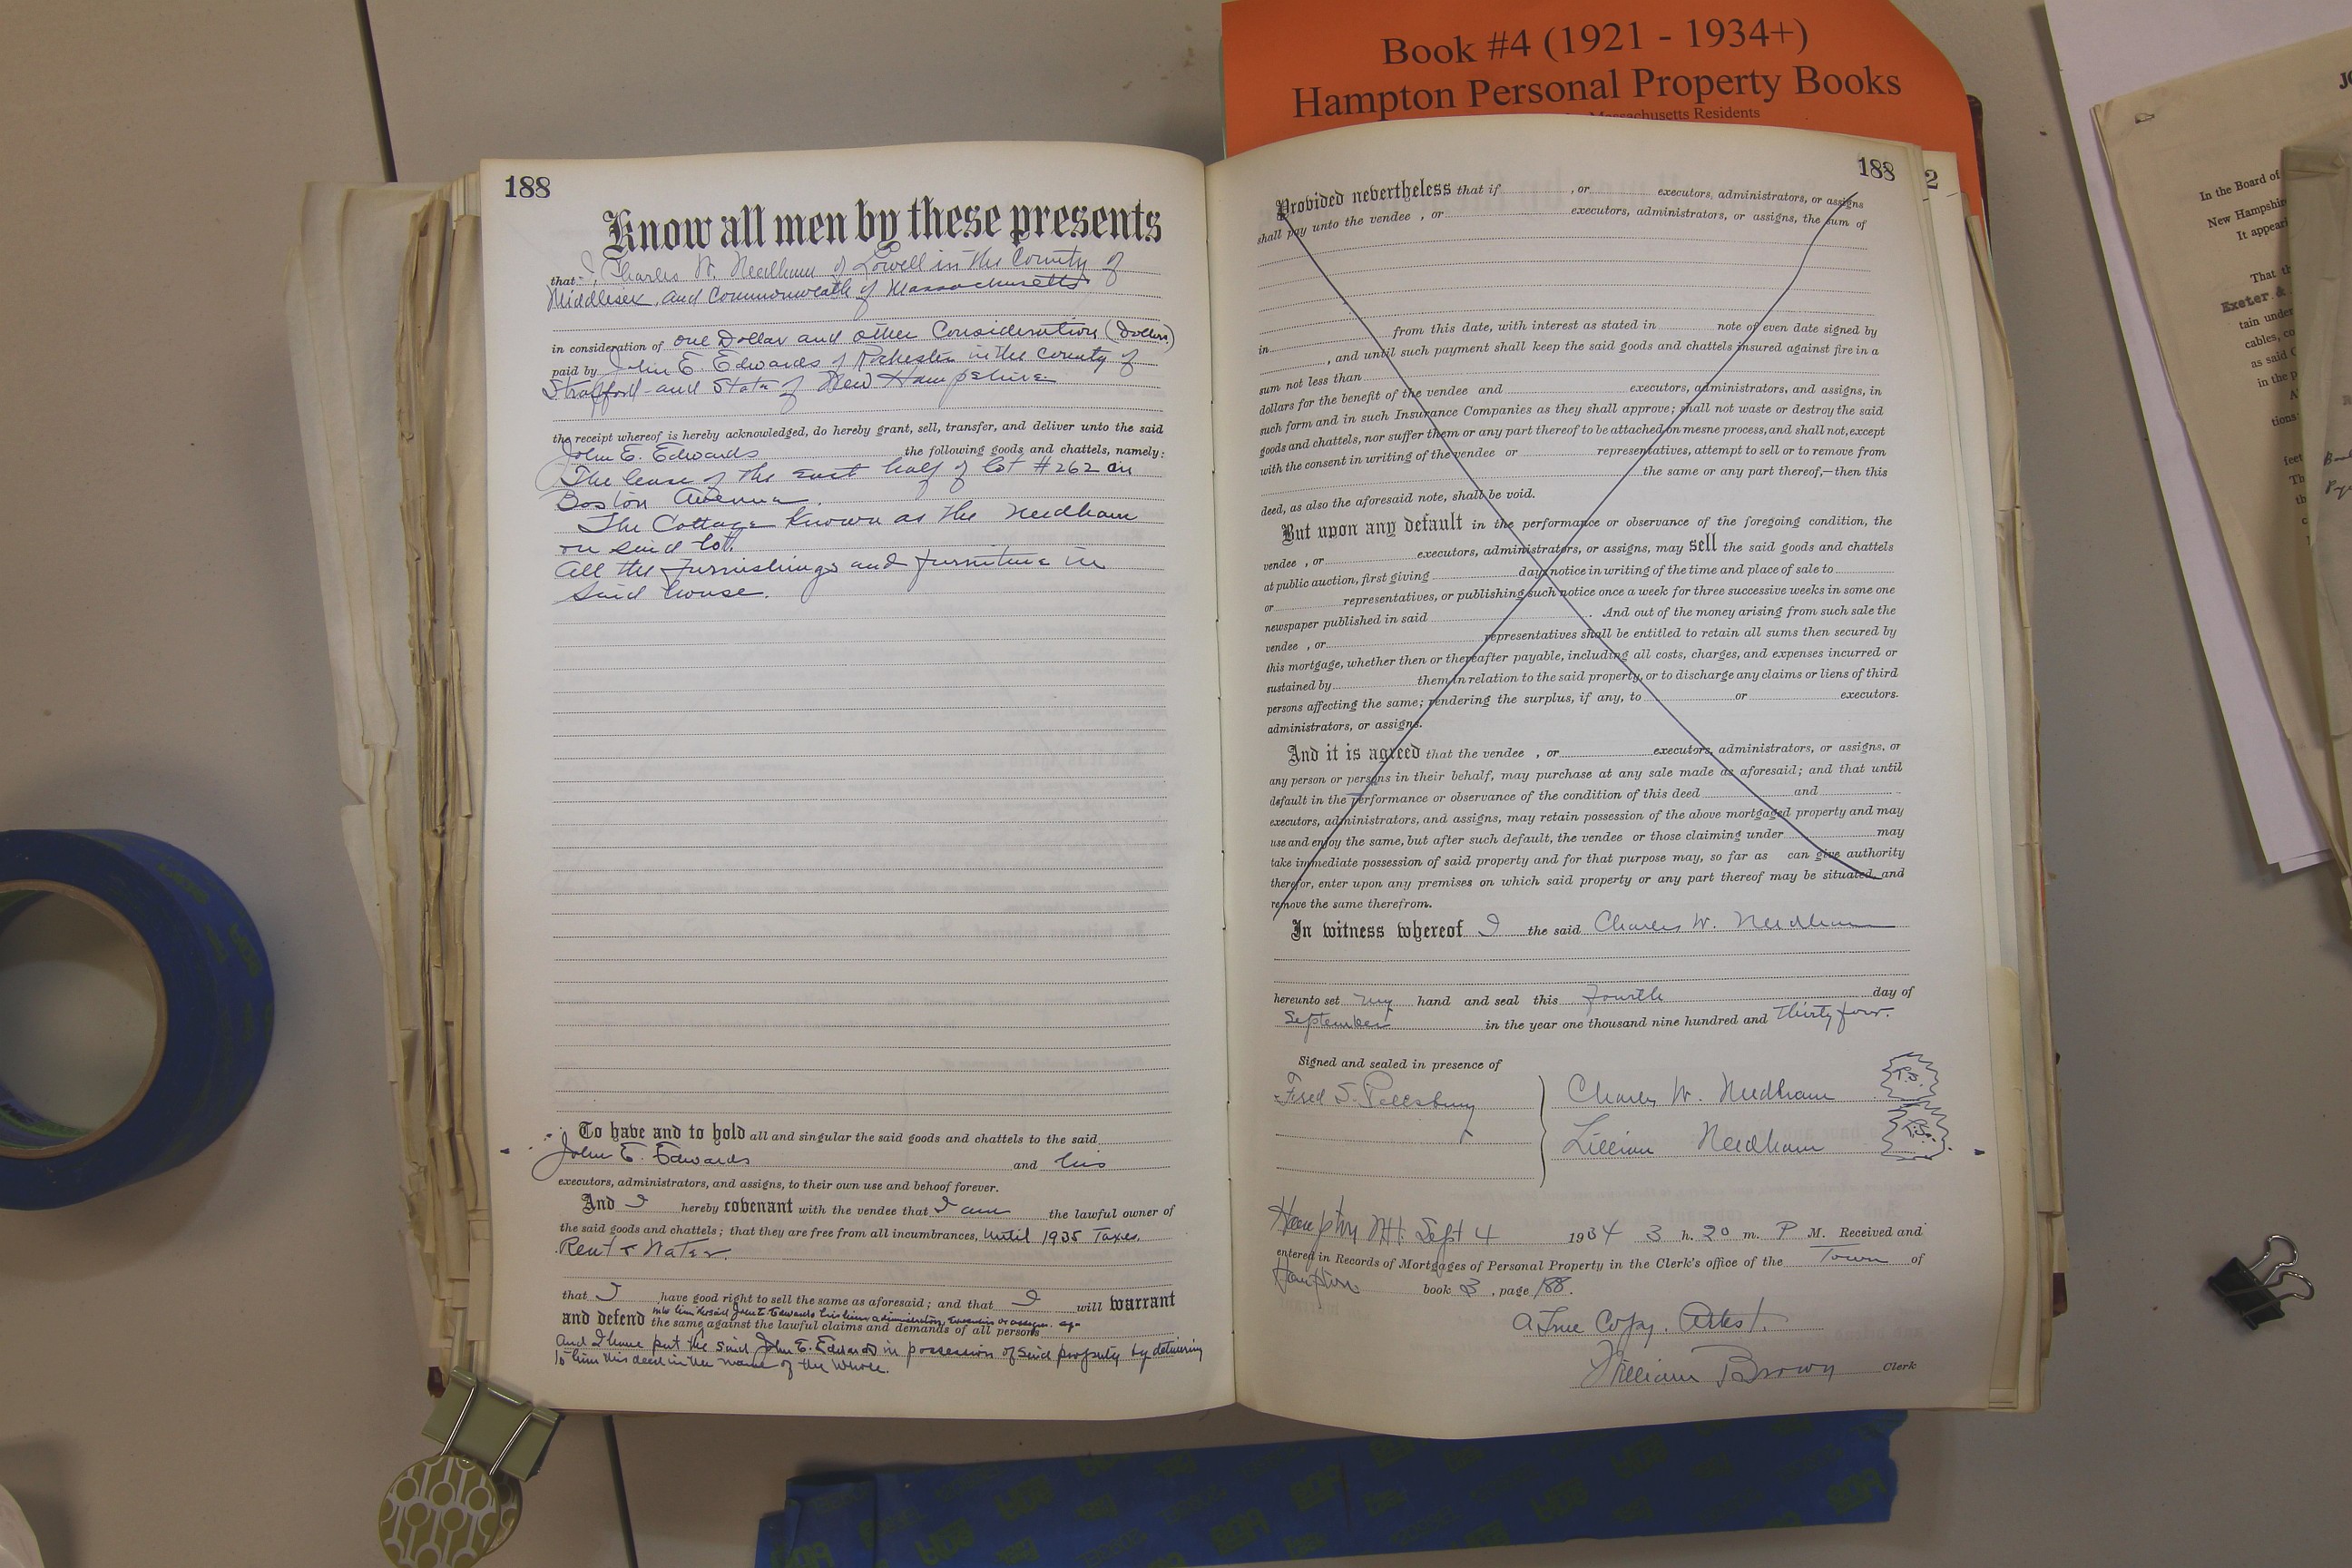 Book #4 (1921 - 1934+)
Hampton Personal Property Books
Massachusetts Residents
188
Know all men by these presents
that I, Charles W. Needham of Lowell in the County of
Middlesex, and Commonwealth of Massachusetts
in consideration of one Dollar and other Consideration (Dollars)
paid by John E. Edwards of Rochester in the County of
Strafford and State of New Hampshire
the receipt whereof is hereby acknowledged, do hereby grant, sell, transfer, and deliver unto the said
John E. Edwards the following goods and chattels, namely:
The lease of the east half of lot #262 on
Boston Avenue.
The Cottage Known as the Needham
on said lot.
All the furnishings and furniture in
said house.
To have and to hold all and singular the said goods and chattels to the said
John E. Edwards and his
executors, administrators, and assigns, to their own use and behoof forever.
And I hereby covenant with the vendee that I am the lawful owner of
the said goods and chattels; that they are free from all incumbrances, Until 1935 Taxes,
Rent & Water
that I have good right to sell the same as aforesaid; and that I will warrant
and defend the same against the lawful claims and demands of all persons
and I have put the said John E. Edwards in possession of said property by delivering
to him this deed in the name of the Whole.
188
2
Provided nevertheless that if , or executors, administrators, or assigns
shall pay unto the vendee , or executors, administrators, or assigns, the sum of
from this date, with interest as stated in note of even date signed by
in , and until such payment shall keep the said goods and chattels insured against fire in a
sum not less than
dollars for the benefit of the vendee and executors, administrators, and assigns, in
such form and in such Insurance Companies as they shall approve; shall not waste or destroy the said
goods and chattels, nor suffer them or any part thereof to be attached on mesne process, and shall not, except
with the consent in writing of the vendee or representatives, attempt to sell or to remove from
the same or any part thereof,—then this
deed, as also the aforesaid note, shall be void.
But upon any default in the performance or observance of the foregoing condition, the
vendee , or executors, administrators, or assigns, may sell the said goods and chattels
at public auction, first giving days notice in writing of the time and place of sale to
or representatives, or publishing such notice once a week for three successive weeks in some one
newspaper published in said . And out of the money arising from such sale the
vendee , or representatives shall be entitled to retain all sums then secured by
this mortgage, whether then or thereafter payable, including all costs, charges, and expenses incurred or
sustained by them in relation to the said property, or to discharge any claims or liens of third
persons affecting the same; rendering the surplus, if any, to or executors.
administrators, or assigns.
And it is agreed that the vendee , or executors, administrators, or assigns, or
any person or persons in their behalf, may purchase at any sale made as aforesaid; and that until
default in the performance or observance of the condition of this deed and
executors, administrators, and assigns, may retain possession of the above mortgaged property and may
use and enjoy the same, but after such default, the vendee or those claiming under may
take immediate possession of said property and for that purpose may, so far as can give authority
therefor, enter upon any premises on which said property or any part thereof may be situated, and
remove the same therefrom.
In witness whereof I the said Charles W. Needham
hereunto set my hand and seal this Fourth day of
September in the year one thousand nine hundred and Thirty four.
Signed and sealed in presence of
Fred S. Pillsbury
Charles W. Needham
Lillian Needham
Hampton N.H. Sept 4 1934 3 h. 20 m. P M. Received and
entered in Records of Mortgages of Personal Property in the Clerk's office of the Town of
Hampton book 3, page 188.
A True Copy. Attest.
William Brown Clerk
In the Board of
New Hampshire
It appear
That th
Exeter &
tain under
cables, co
as said C
in the p
tions
feet